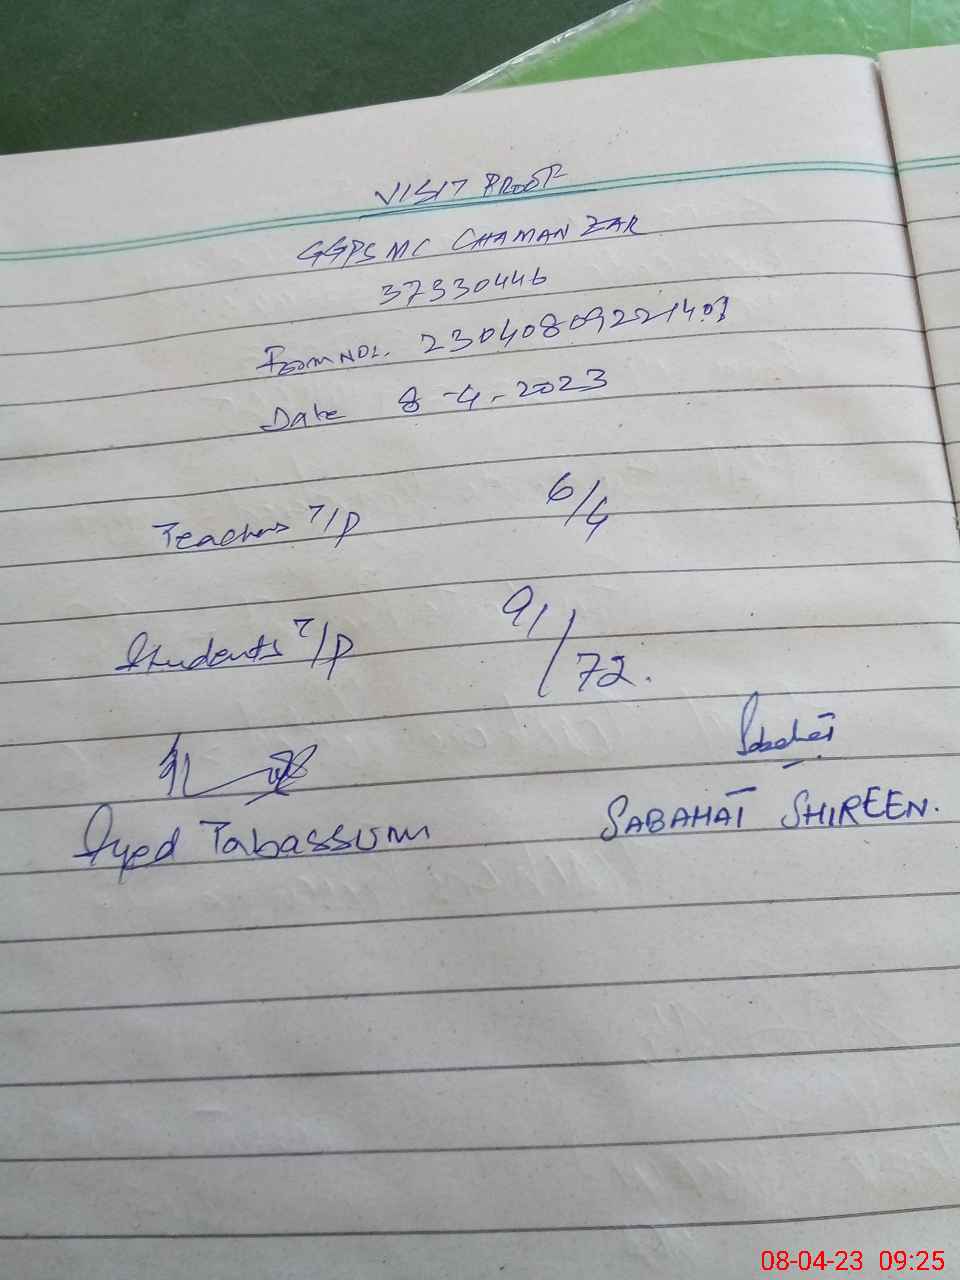 VISIT PROOF
GGPS MC CHAMAN ZAR
37330446
Form No. 23040809221403
Date 8-4-2023
Teachers T/P 6/4
Students T/P 91/72.
Sabahat
Syed Tabassum
SABAHAT SHIREEN.
08-04-23 09:25